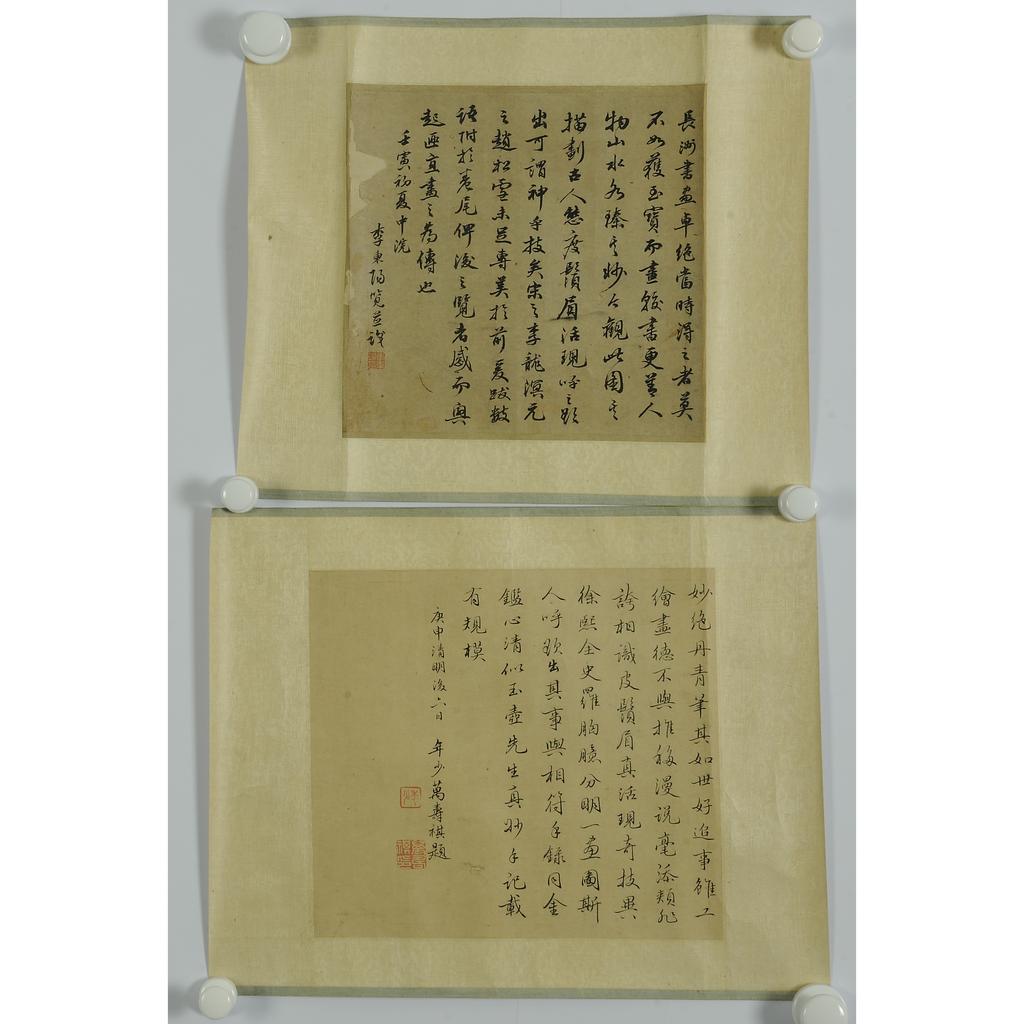 長洲書畫卓絕當時得之者莫
不如獲至寶而畫較書更善人
物山水各臻其妙今觀此圖其
描劃古人態度鬚眉活現呼之欲
出可謂神乎技矣宋之李龍溟元
之趙松雪未足專美於前爰跋數
語附於卷尾俾後之覽者感而興
起匪直畫之為傳也
壬寅初夏中浣
李東陽覽並識
妙絕丹青筆其如世好追事雖工
繪畫德不與推移漫說毫添頰非
誇相識皮鬚眉真活現奇技異
徐熙全史羅胸臆分明一畫圖斯
人呼欲出其事與相符手錄同金
鑑心清似玉壺先生真妙手記載
有規模
庚申清明後六日 年少萬壽祺題